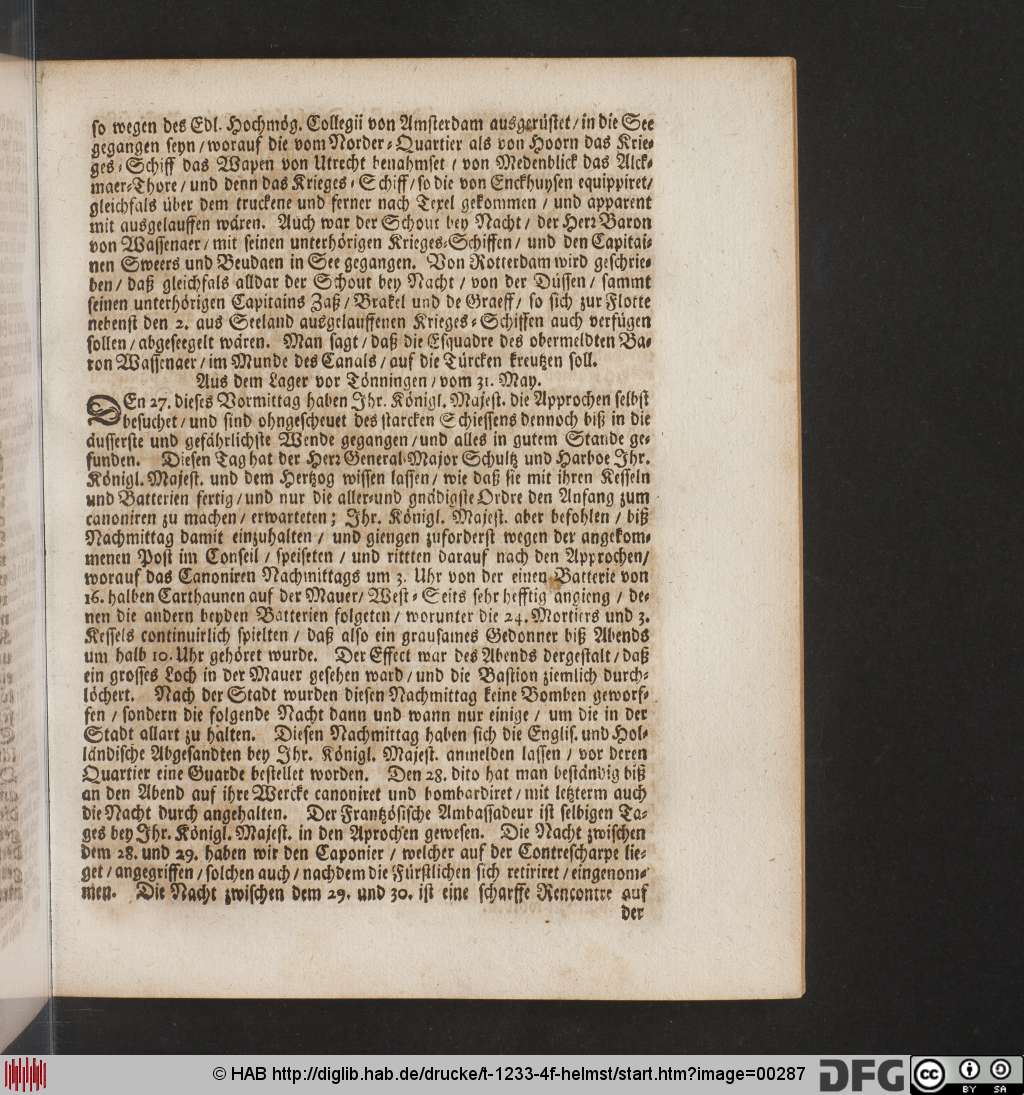 so wegen des Edl. Hochmög. Collegii von Amsterdam ausgerüstet / in die See
gegangen seyn / worauf die vom Norder-Quartier als von Hoorn das Krie-
ges-Schiff das Wapen von Utrecht benahmset / von Medenblick das Alck-
maer-Thore / und denn das Krieges-Schiff / so die von Enckhuysen equippiret /
gleichfals über dem truckene und ferner nach Texel gekommen / und apparent
mit ausgelauffen wären. Auch war der Schout bey Nacht / der Herr Baron
von Wassenaer / mit seinen unterhörigen Krieges-Schiffen / und den Capitai-
nen Sweers und Beudaen in See gegangen. Von Rotterdam wird geschrie-
ben / daß gleichfals alldar der Schout bey Nacht / von der Düssen / sammt
seinen unterhörigen Capitains Zaß / Brakel und de Graeff / so sich zur Flotte
nebenst den 2. aus Seeland ausgelauffenen Krieges-Schiffen auch verfügen
sollen / abgeseegelt wären. Man sagt / daß die Esquadre des obermeldten Ba-
ron Wassenaer / im Munde des Canals / auf die Türcken kreutzen soll.
Aus dem Lager vor Tönningen / vom 31. May.
DEn 27. dieses Vormittag haben Ihr. Königl. Majest. die Approchen selbst
besuchet / und sind ohngescheuet des starcken Schiessens dennoch biß in die
äusserste und gefährlichste Wende gegangen / und alles in gutem Stande ge-
funden. Diesen Tag hat der Herr General-Major Schultz und Harboe Ihr.
Königl. Majest. und dem Hertzog wissen lassen / wie daß sie mit ihren Kesseln
und Batterien fertig / und nur die aller-und gnädigste Ordre den Anfang zum
canoniren zu machen / erwarteten; Ihr. Königl. Majest. aber befohlen / biß
Nachmittag damit einzuhalten / und giengen zuforderst wegen der angekom-
menen Post im Conseil / speiseten / und rittten darauf nach den Approchen /
worauf das Canoniren Nachmittags um 3. Uhr von der einen Batterie von
16. halben Carthaunen auf der Mauer / West-Seits sehr hefftig angieng / de-
nen die andern beyden Batterien folgeten / worunter die 24. Mortiers und 3.
Kessels continuirlich spielten / daß also ein grausames Gedonner biß Abends
um halb 10. Uhr gehöret wurde. Der Effect war des Abends dergestalt / daß
ein grosses Loch in der Mauer gesehen ward / und die Bastion ziemlich durch-
löchert. Nach der Stadt wurden diesen Nachmittag keine Bomben geworf-
fen / sondern die folgende Nacht dann und wann nur einige / um die in der
Stadt allart zu halten. Diesen Nachmittag haben sich die Englis. und Hol-
ländische Abgesandten bey Ihr. Königl. Majest. anmelden lassen / vor deren
Quartier eine Guarde bestellet worden. Den 28. dito hat man beständig biß
an den Abend auf ihre Wercke canoniret und bombardiret / mit letzterm auch
die Nacht durch angehalten. Der Frantzösische Ambassadeur ist selbigen Ta-
ges bey Ihr. Königl. Majest. in den Aprochen gewesen. Die Nacht zwischen
dem 28. und 29. haben wir den Caponier / welcher auf der Contrescharpe lie-
get / angegriffen / solchen auch / nachdem die Fürstlichen sich retiriret / eingenom-
men. Die Nacht zwischen dem 29. und 30. ist eine scharffe Rencontre auf
der
© HAB http://diglib.hab.de/drucke/t-1233-4f-helmst/start.htm?image=00287
DFG
cc BY SA